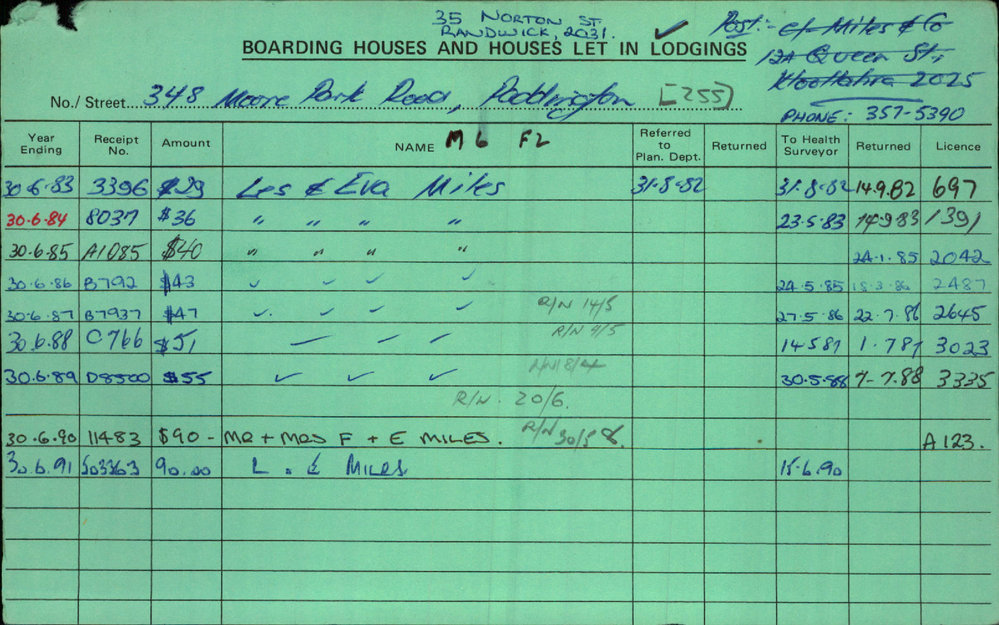 35 NORTON ST.
RANDWICK, 2031.
Post:- c/- Miles & Co
12A Queen St,
Woollahra 2025
PHONE: 357-5390
BOARDING HOUSES AND HOUSES LET IN LODGINGS
No./ Street 348 Moore Park Road, Paddington [255]
Year Ending Receipt No. Amount NAME M 6 F 2 Referred to Plan. Dept. Returned To Health Surveyor Returned Licence
30.6.83 3396 $29 Les & Eva Miles 31.8.82 31.8.82 14.9.82 697
30.6.84 8037 $36 " " " " 23.5.83 14.9.83 1391
30.6.85 A1085 $40 " " " " 24.1.85 2042
30.6.86 B792 $43 24.5.85 18.3.86 2487
30.6.87 B7937 $47 R/N 14/5 27.5.86 22.7.86 2645
R/N 9/5
30.6.88 C766 $51 14.5.87 1.7.87 3023
18/4
30.6.89 D8500 $55 30.5.88 7-7.88 3335
R/N. 20/6.
30.6.90 11483 $90- MR + MRS F + E MILES. R/N A123.
30.6.91 503363 90.00 L. & MILES 15.6.90